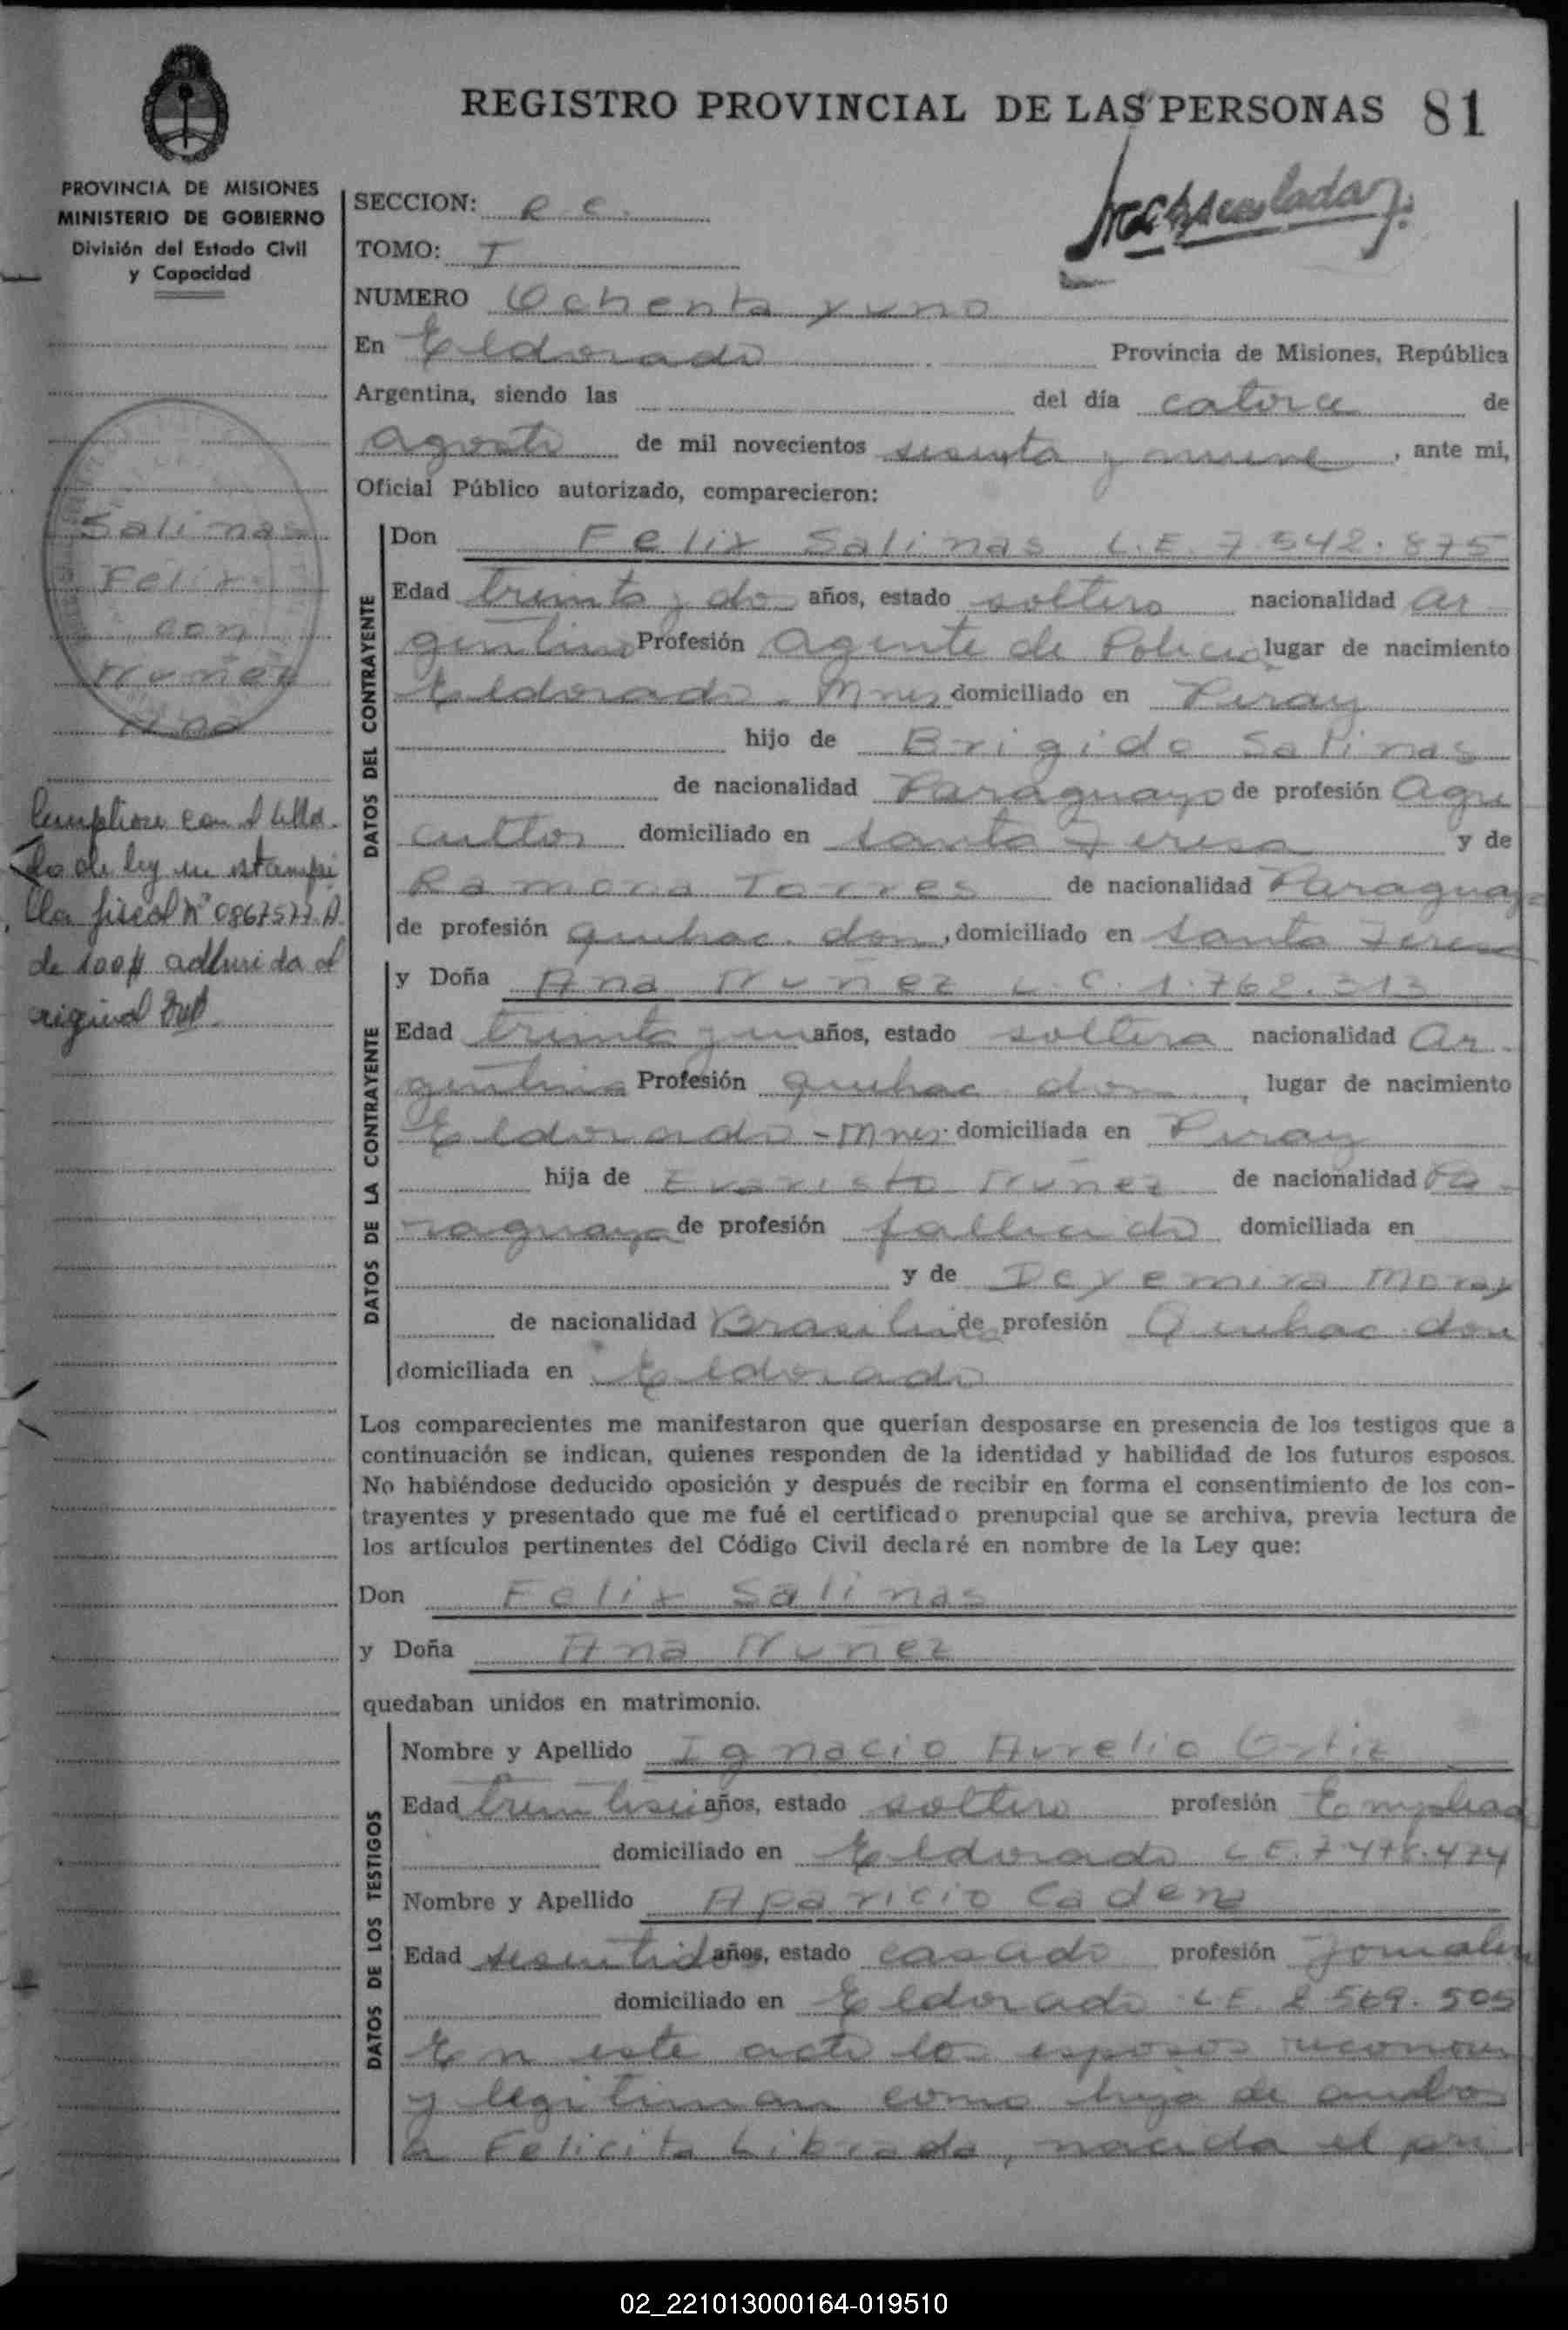 REGISTRO PROVINCIAL DE LAS PERSONAS 81
PROVINCIA DE MISIONES
MINISTERIO DE GOBIERNO
División del Estado Civil
y Capacidad
SECCION: R. C.
TOMO: I
NUMERO Ochenta y uno
En Eldorado Provincia de Misiones, República
Argentina, siendo las del día catorce de
agosto de mil novecientos sesenta y nueve, ante mi,
Oficial Público autorizado, comparecieron:
Salinas
Felix
con
Nuñez
Ana
Cumpliose con el sella-
do de ley en estampi
lla fiscal Nº 0867577 A
de 100 $ adherida al
original
DATOS DEL CONTRAYENTE
Don Felix Salinas L.E. 7.542.875
Edad treinta y dos años, estado soltero nacionalidad Ar
gentino Profesión Agente de Policia lugar de nacimiento
Eldorado - Mnes domiciliado en Piray
hijo de Brigido Salinas
de nacionalidad Paraguayo de profesión Agri
cultor domiciliado en Santa Teresa y de
Ramona Torres de nacionalidad Paraguaya
de profesión quehac. dom, domiciliado en Santa Teresa
DATOS DE LA CONTRAYENTE
y Doña Ana Nuñez L.C. 1.762.313
Edad treinta y un años, estado soltera nacionalidad Ar-
gentina Profesión quehac dom, lugar de nacimiento
Eldorado - Mnes. domiciliada en Piray
hija de Evaristo Nuñez de nacionalidad Pa-
raguaya de profesión fallecido domiciliada en
y de Moray
de nacionalidad Brasileña de profesión Quehac. dom
domiciliada en Eldorado
Los comparecientes me manifestaron que querían desposarse en presencia de los testigos que a
continuación se indican, quienes responden de la identidad y habilidad de los futuros esposos.
No habiéndose deducido oposición y después de recibir en forma el consentimiento de los con-
trayentes y presentado que me fué el certificado prenupcial que se archiva, previa lectura de
los artículos pertinentes del Código Civil declaré en nombre de la Ley que:
Don Felix Salinas
y Doña Ana Nuñez
quedaban unidos en matrimonio.
DATOS DE LOS TESTIGOS
Nombre y Apellido Ignacio Aurelio Ortiz
Edad treintiseis años, estado soltero profesión Empleado
domiciliado en Eldorado L.E. 7.478.474
Nombre y Apellido Aparicio Cadena
Edad sesentidos años, estado casado profesión Jornalero
domiciliado en Eldorado L.E. 2.569.505
En este acto los esposos reconocen
y legitiman como hija de ambos
a Felicita Librada, nacida el pri
02_221013000164-019510